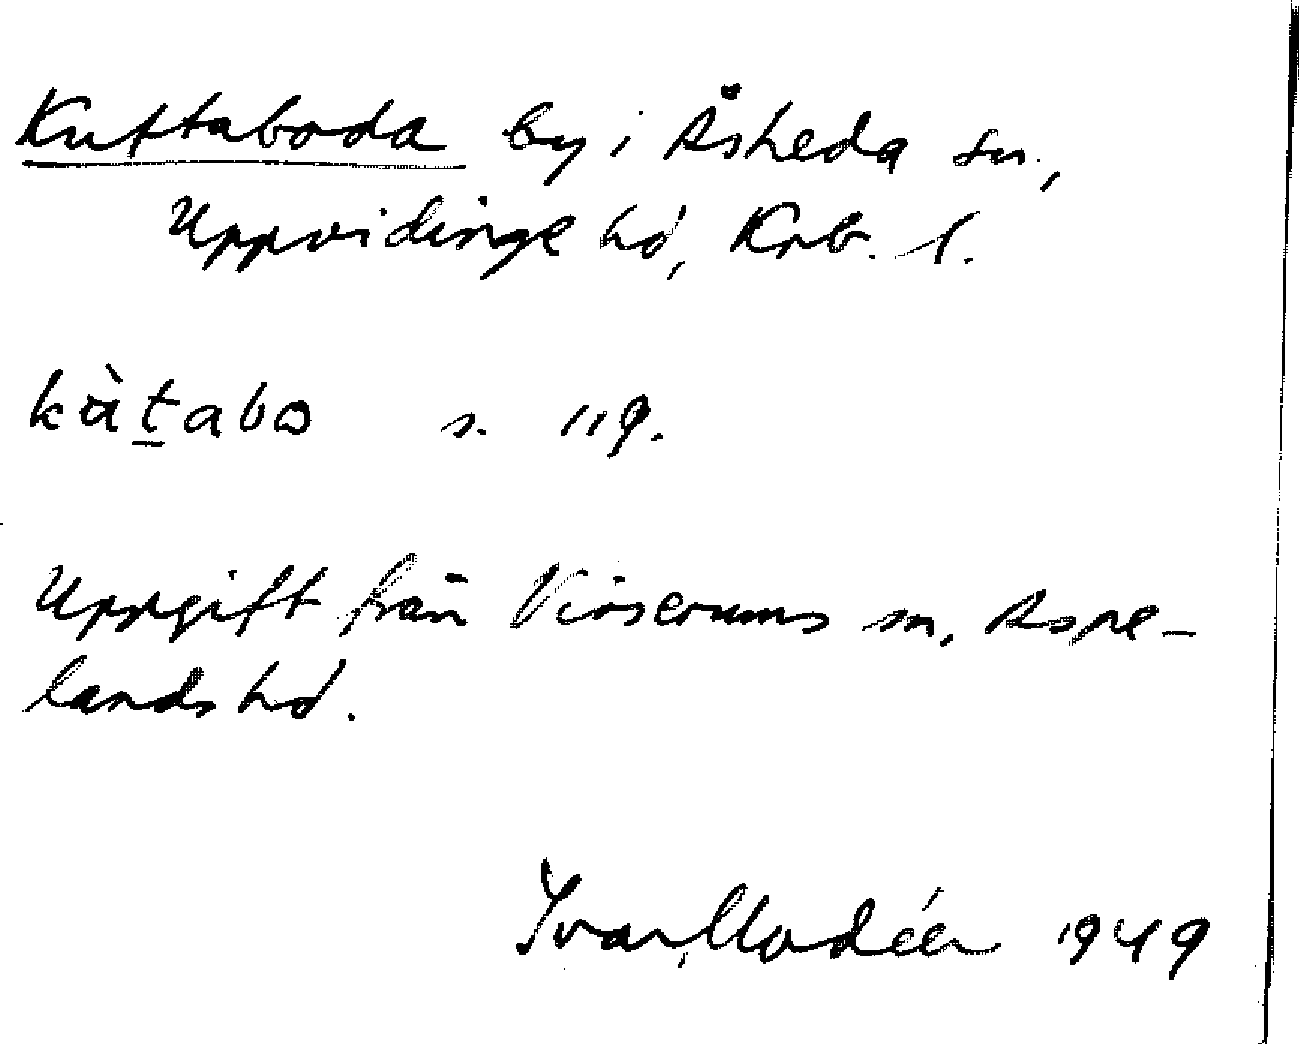 Kuttaboda by i Åsheda sn.,
Uppvidinge hd, Krb. l.
kàt̲abo s. 119.
Uppgift från Virserums sn, Aspe-
lands hd.
Ivar Modéer 1949